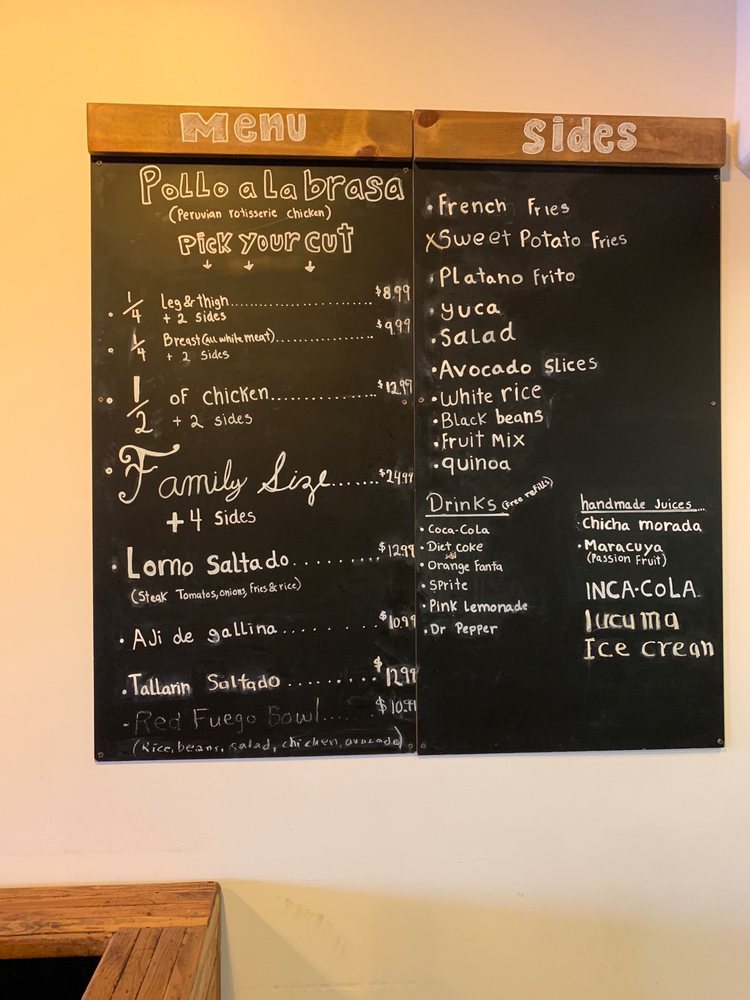 Menu
Pollo a la brasa
(Peruvian rotisserie chicken)
Pick your cut
• 1/4 Leg & thigh.......................... $8.99
+ 2 sides
• 1/4 Breast (all white meat)................. $9.99
+ 2 sides
• 1/2 of chicken................ $12.99
+ 2 sides
• Family Size....... $24.99
+4 sides
• Lomo Saltado.......... $12.99
(Steak Tomatos, onions, fries & rice)
• Aji de gallina............ $10.99
• Tallarin Saltado......... $12.99
- Red Fuego Bowl...... $10.99
(Rice, beans, salad, chicken, avocado)
Sides
• French Fries
x Sweet Potato Fries
• Platano Frito
• yuca
• Salad
• Avocado slices
• White rice
• Black beans
• Fruit Mix
• quinoa
Drinks (free refills)
• Coca-Cola
• Diet coke
• Orange Fanta
• Sprite
• Pink Lemonade
• Dr Pepper
handmade Juices...
• Chicha morada
• Maracuya
(Passion Fruit)
INCA·COLA
lucuma
Ice cream